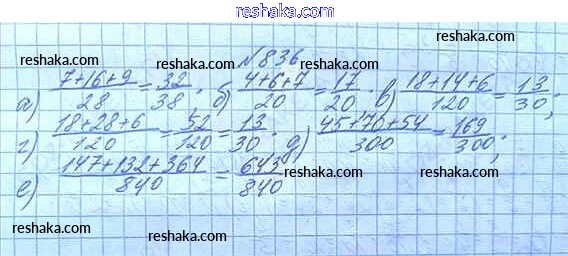 reshaka.com
№836
reshaka.com reshaka.com reshaka.com
а) (7+16+9)/28 = 32/38; б) (4+6+7)/20 = 17/20. в) (18+14+6)/120 = 13/30;
г) (18+28+6)/120 = 52/120 = 13/30. д) (45+70+54)/300 = 169/300;
reshaka.com reshaka.com reshaka.com
е) (147+132+364)/840 = 643/840
reshaka.com
reshaka.com reshaka.com